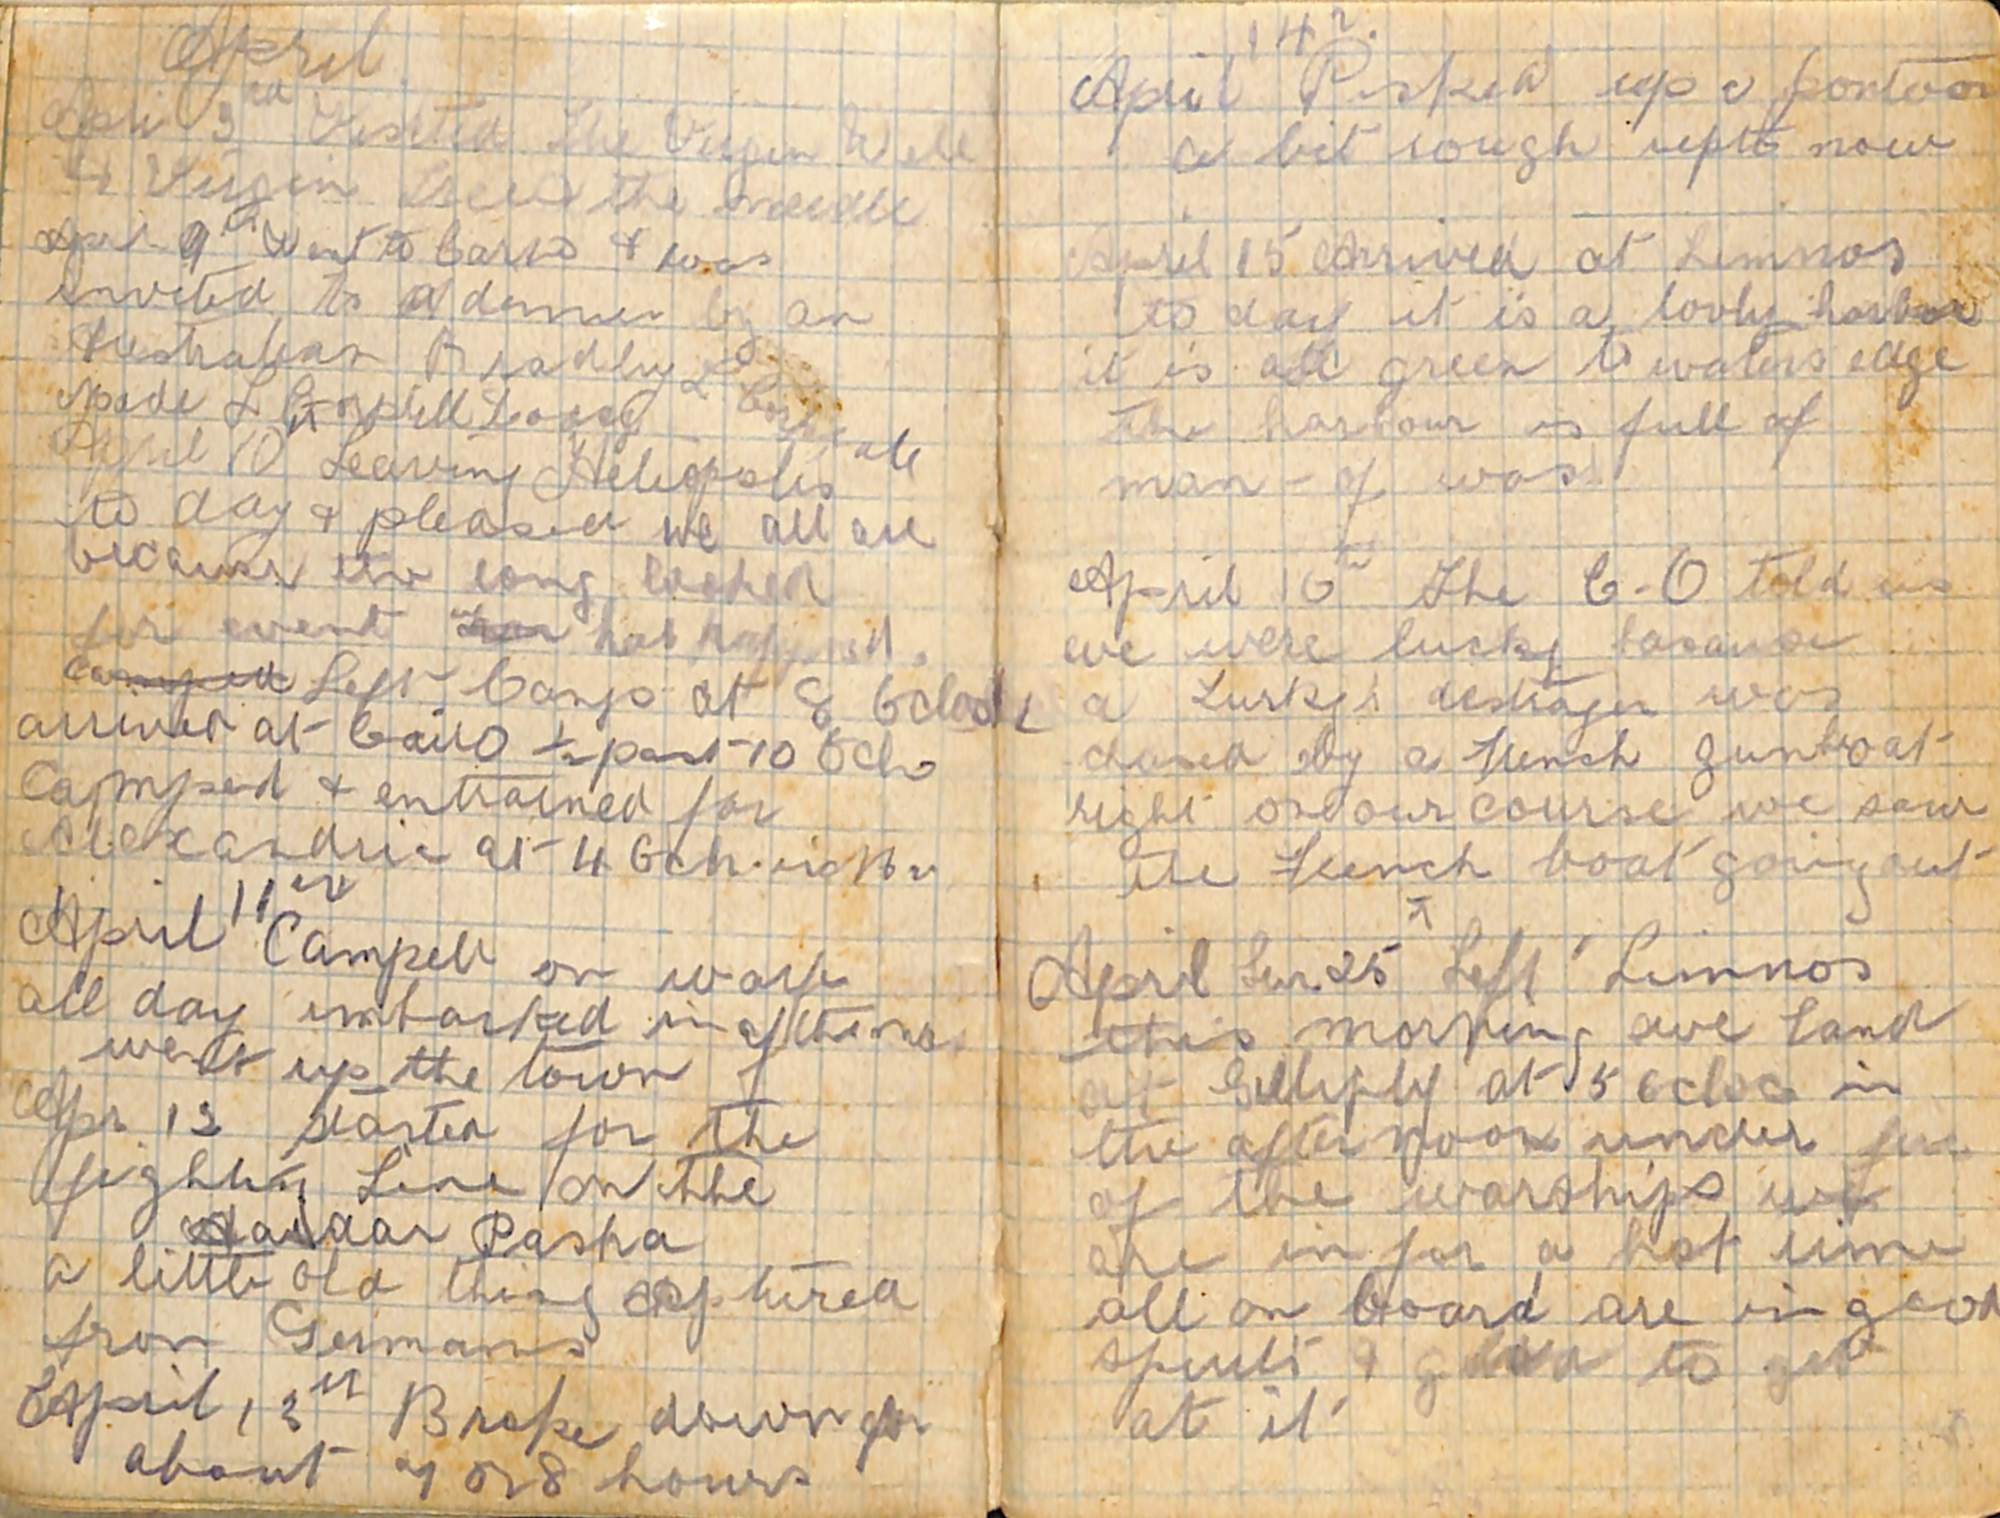 April
April 3rd Visited the Virgin Well
& Virgin Tree & the needle
April 9th Went to Cario & was
invited to a dinner by an
Australian Bradley &
made &
April 10 Leaving Heliopolis
to day & pleased we all are
because the long looked
for event has has happened.
camped Left Camp at 8 Oclock
arrived at Cairo ½ past 10 Oclo
Camped & entrained for
Alexandria at 4 Oclk
April 11th Campell on warf
all day embarked in afterno
went up the town
Apr. 12 started for the
fighting Line on the
Haidar Pasha
a little old thing captured
from Germans
April 13th Broke down for
about 7 or 8 hours
14th.
April Picked up a pontoon
a bit rough up to now
April 15 Arrived at Limnos
to day it is a lovly harbor
it is all green to waters edge
the harbour is full of
man-of was
April 16th The C-O told us
we were lucky because
a Turkys destroyer was
chased by a French gunboat
right on our course we saw
the French boat going out
April Sun. 25th Left Limnos
this morning ave land
at Gilliply at 5 oclock in
the afternoon under fire
of the warships we
are in for a hot time
all on board are in good
spirits & glad to get
at it